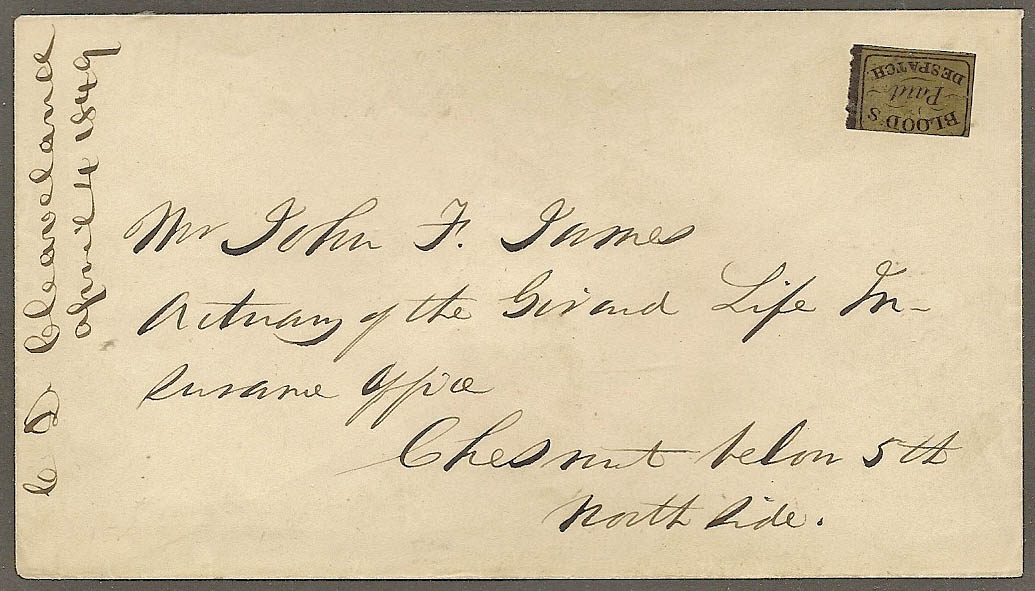 C D Cleaveland
april 4 1849
BLOOD'S
Paid
DESPATCH
Mr John F. James
Actuary of the Girard Life In-
surance Office
Chesnut below 5th
North Side.